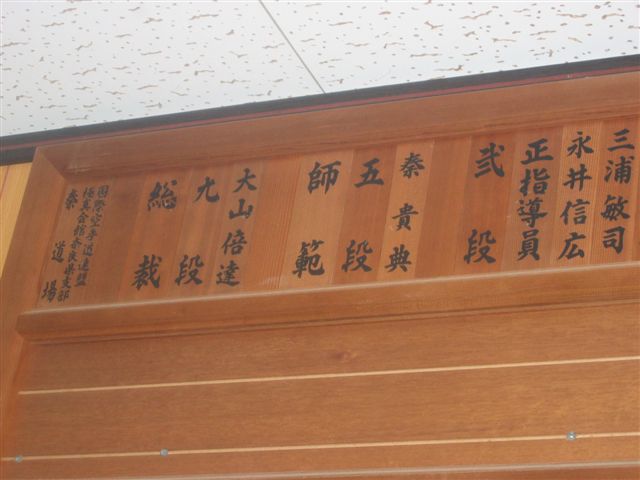 国際空手道連盟
極真会館奈良県支部
秦道場
総裁
九段
大山倍達
師範
五段
秦貴典
弐段
正指導員
永井信広
三浦敏司